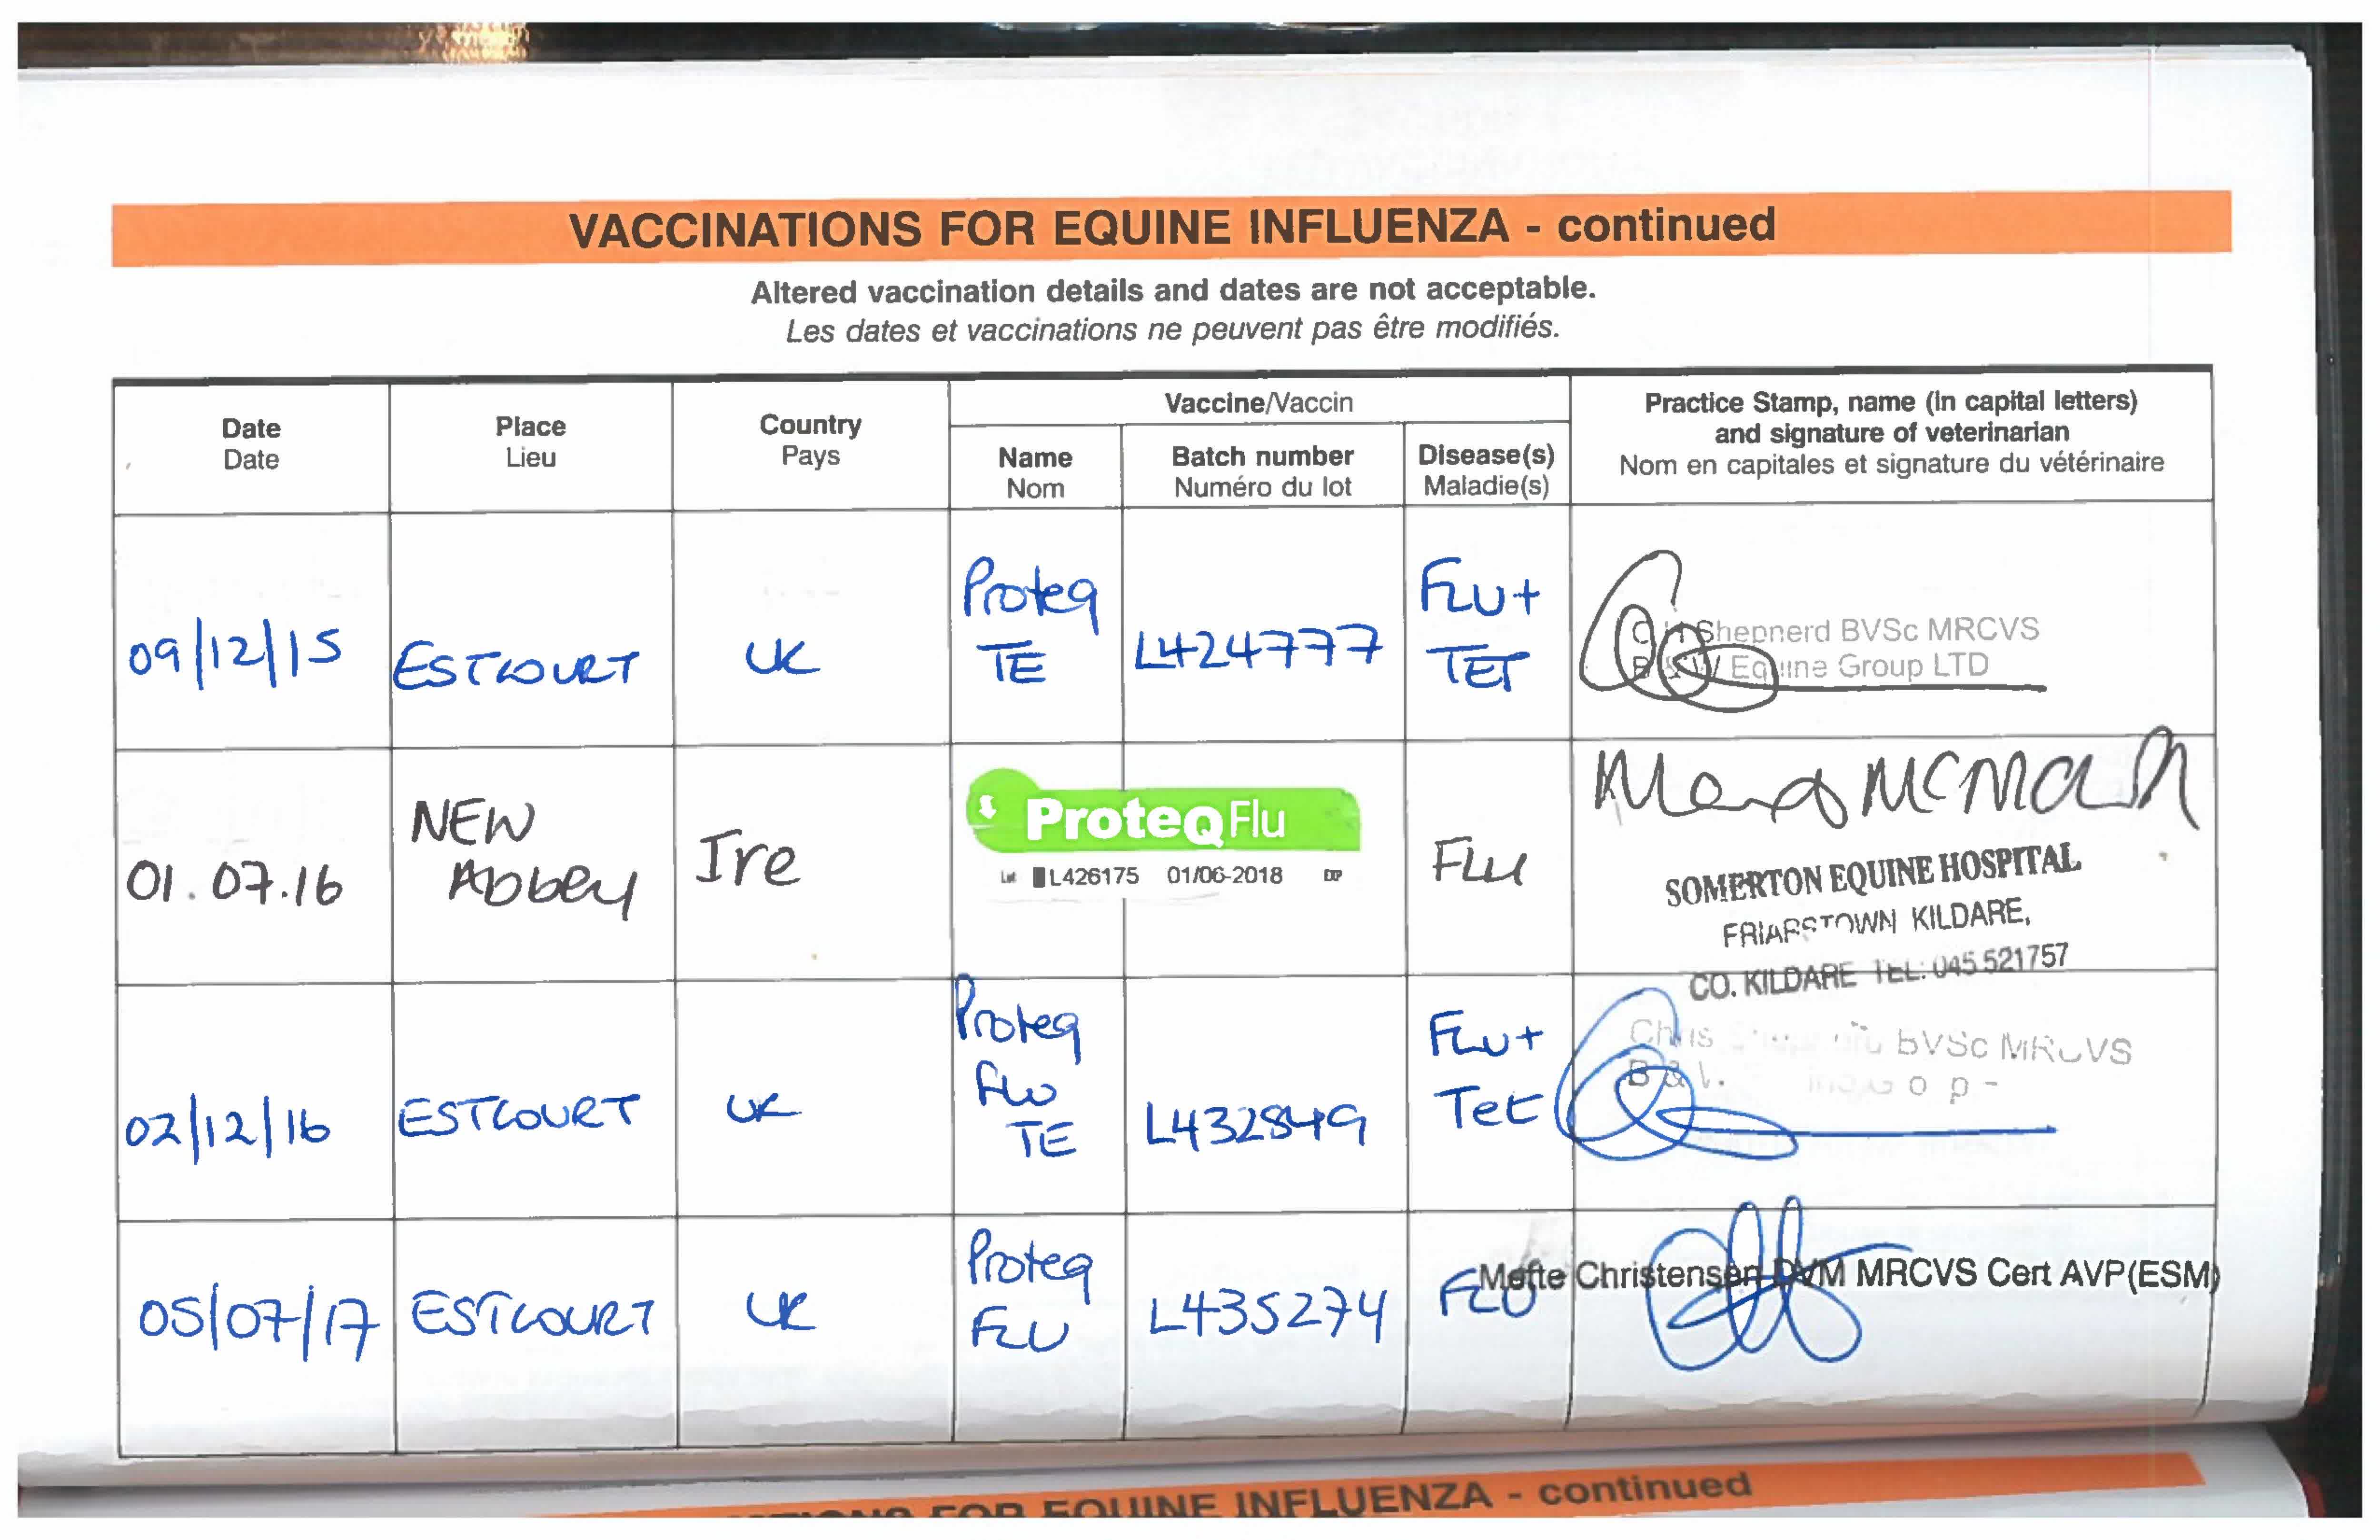 VACCINATIONS FOR EQUINE INFLUENZA - continued
Altered vaccination details and dates are not acceptable.
Les dates et vaccinations ne peuvent pas être modifiés.
Date
Date
Place
Lieu
Country
Pays
Vaccine/Vaccin
Name
Nom
Batch number
Numéro du lot
Disease(s)
Maladie(s)
Practice Stamp, name (in capital letters)
and signature of veterinarian
Nom en capitales et signature du vétérinaire
09/12/15
ESTCOURT
UK
Proteq
TE
L424777
FLU+
TET
Shepherd BVSc MRCVS
Equine Group LTD
01.07.16
NEW
Abbey
Ire
ProteqFlu
Lot L426175 01/06-2018 EXP
FLU
McMah
SOMERTON EQUINE HOSPITAL
FRIARSTOWN KILDARE,
CO. KILDARE TEL: 045 521757
02/12/16
ESTCOURT
UK
Proteq
Flu
TE
L432849
FLU+
Tet
Chris BVSc MRCVS
B &
05/07/17
ESTCOURT
UK
Proteq
FLU
L435274
FLU
Mette Christensen DVM MRCVS Cert AVP(ESM)
FOR EQUINE INFLUENZA - continued